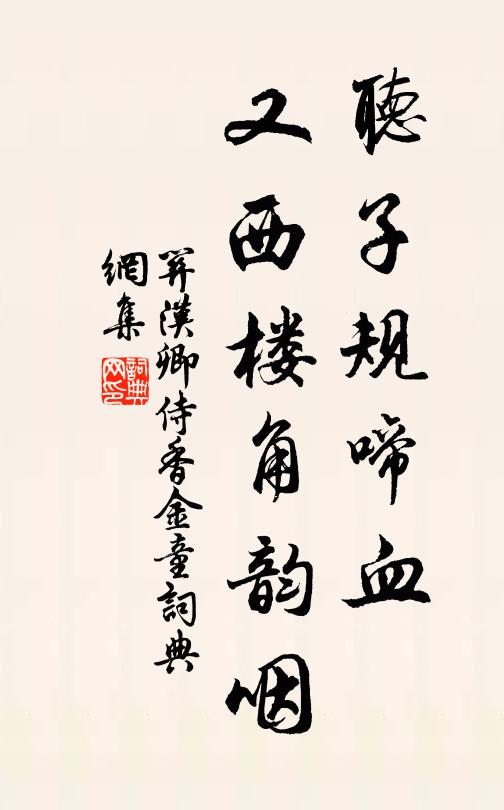 聽子規啼血
又西楼角韵咽
關漢卿侍香金童詞典
網集
詞典
网印